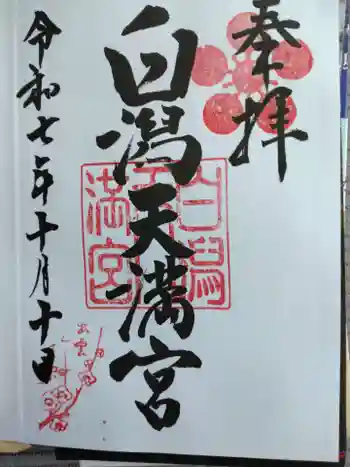 奉拝
白潟天満宮
白潟
天満宮
令和七年十月十日